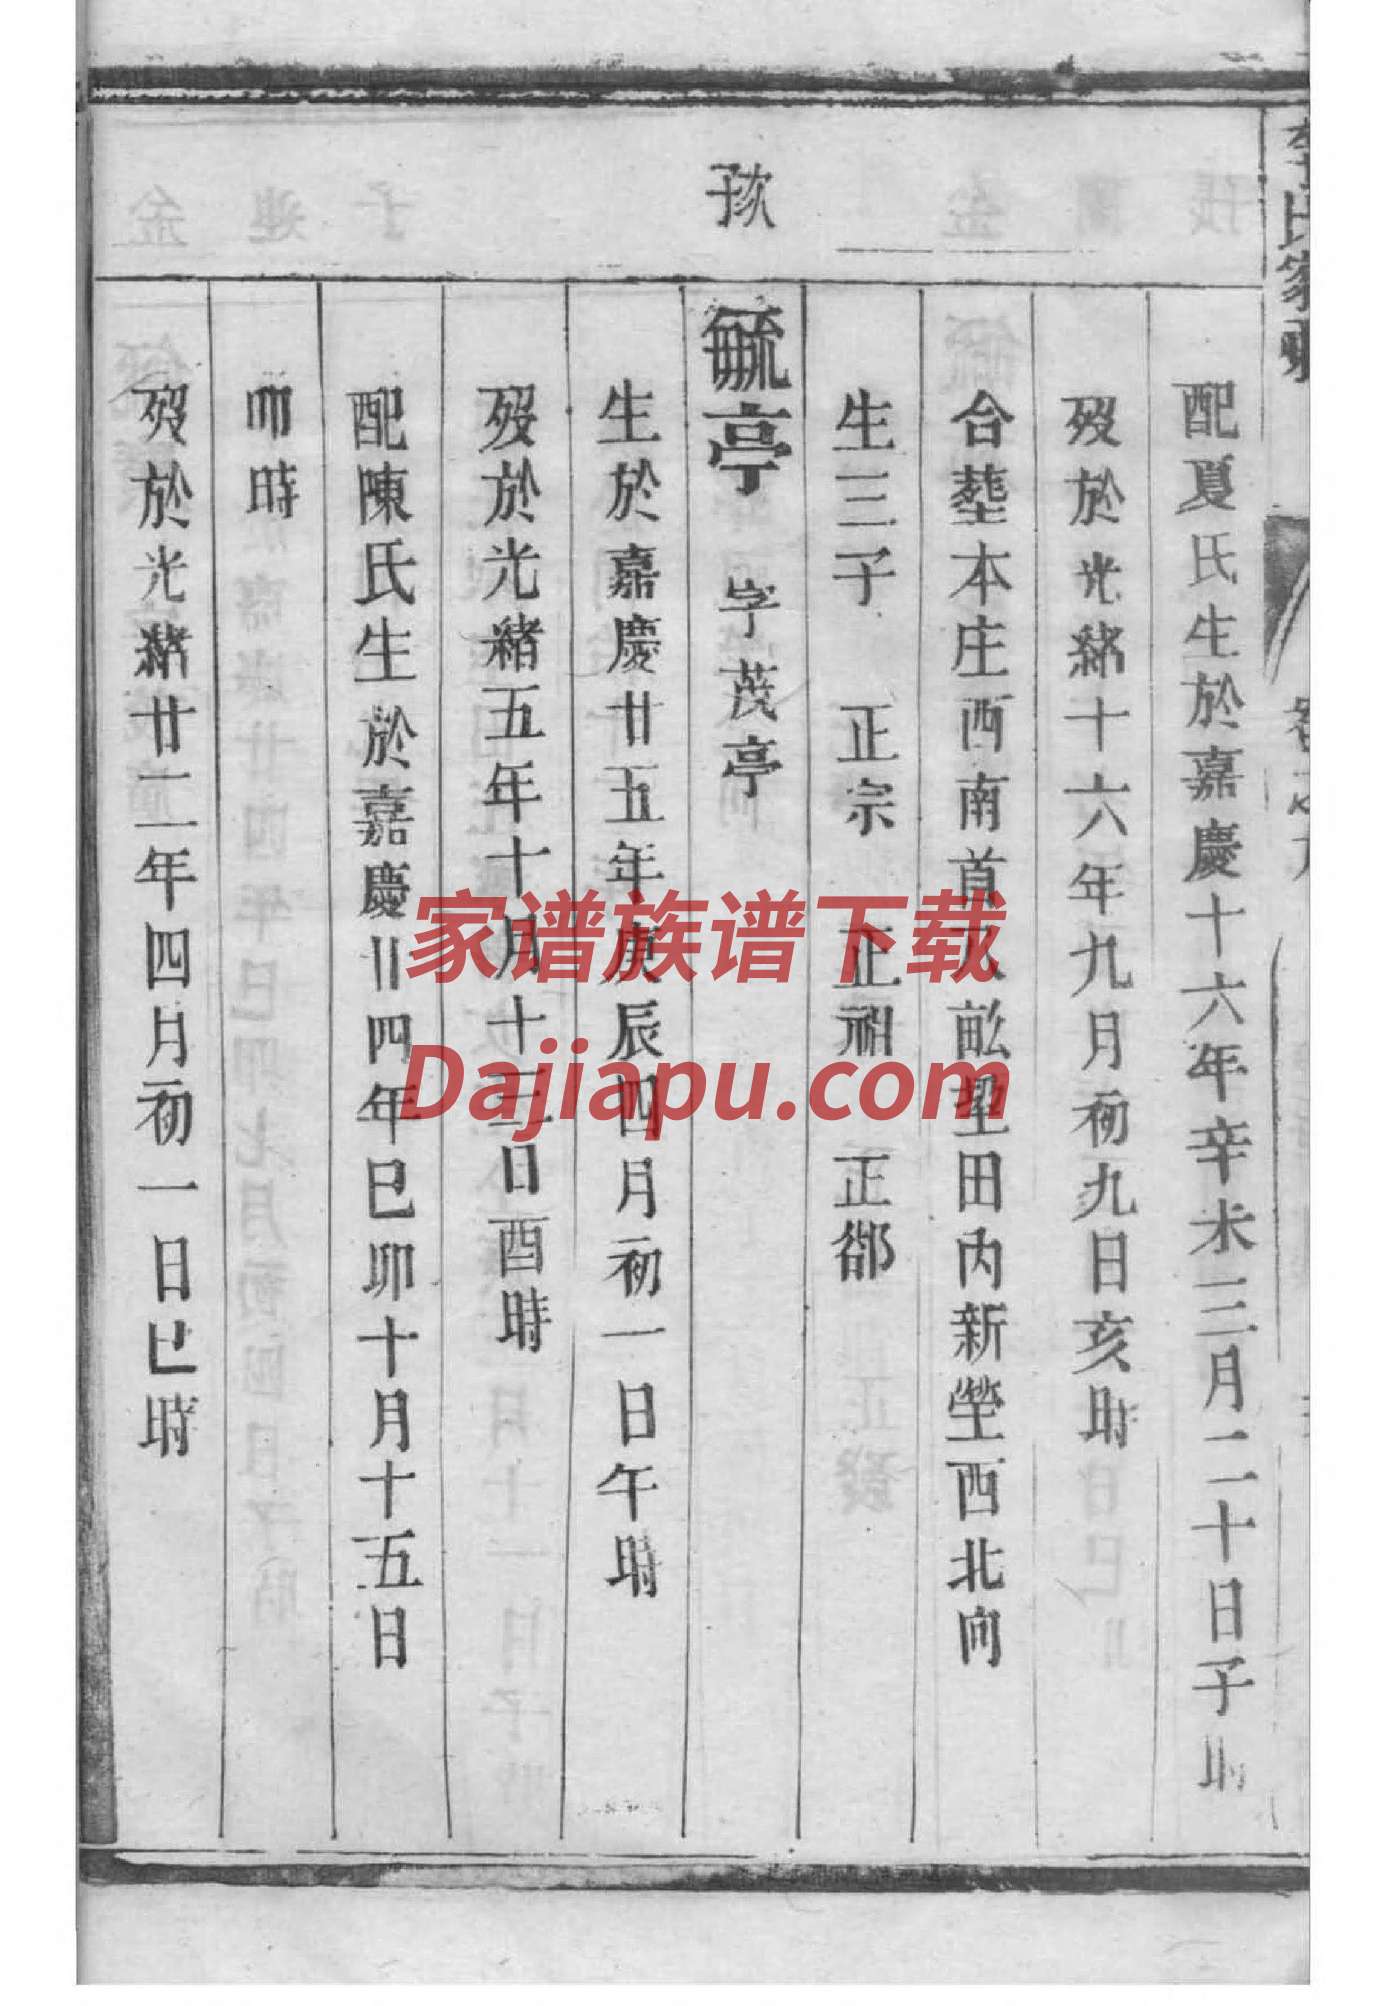 氏家
配夏氏生於嘉慶十六年辛未三月二十日子時
歿於光緒十六年九月初九日亥時
合塟本庄西南首八畝塋田內新塋西北向
生三子 正宗 正祖 正郤
孩
毓亭 字茂亭
生於嘉慶廿五年庚辰四月初一日午時
歿於光緒五年十月十三日酉時
配陳氏生於嘉慶廿四年巳卯十月十五日
時
歿於光緒廿二年四月初一日巳時
家谱族谱下载
Dajiapu.com